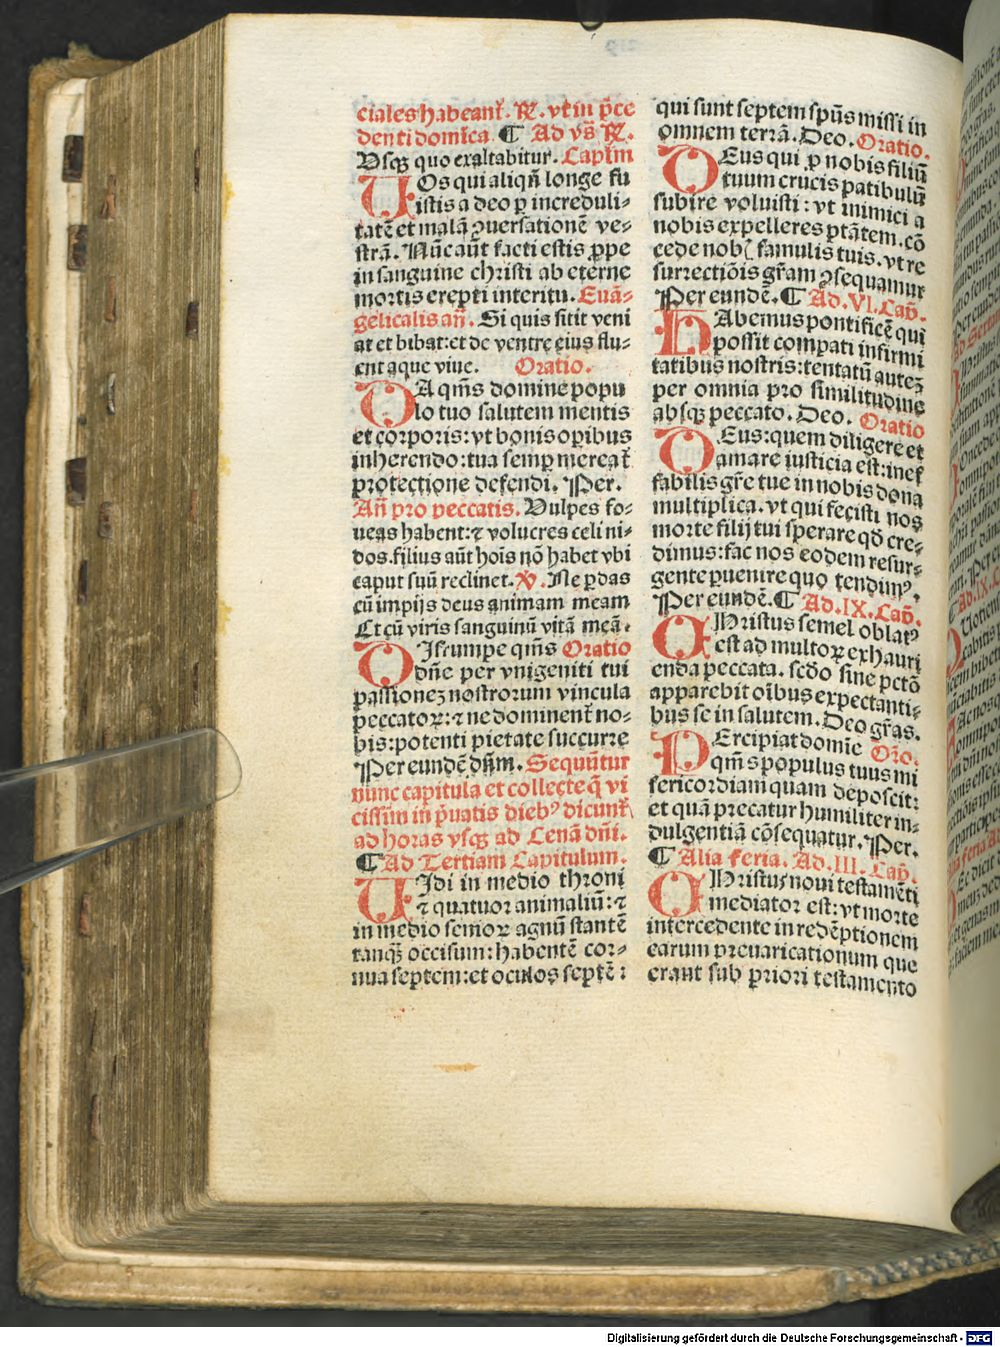 ciales habeant̄. R̄. vt in p̄ce
denti domīca. ¶ Ad vs̄ R̄.
Vsqꝫ quo exaltabitur. Capl̄m
VOs qui aliqn̄ longe fu
istis a deo ꝑ increduli-
tatē et malā ꝯuersationē ve-
strā. Nūc aūt facti estis ꝓpe
in sanguine christi ab eterne
mortis erepti interitu. Euā-
gelicalis an̄. Si quis sitit veni
at et bibat: et de ventre eius flu-
ent aque viue. Oratio.
DA qm̄s domine popu
lo tuo salutem mentis
et corporis: vt bonis oꝑibus
inherendo: tua semꝑ mereat̄
protectione defendi. Per.
An̄ pro peccatis. Vulpes fo-
ueas habent: ⁊ volucres celi ni-
dos. filius aūt hoīs nō habet vbi
caput suū reclinet. V̄. Ne ꝑdas
cū impijs deus animam meam
Et cū viris sanguinū vitā meā.
DIsrumpe qm̄s Oratio
dn̄e per vnigeniti tui
passionez nostrorum vincula
peccatoꝝ: ⁊ ne dominent̄ no-
bis: potenti pietate succurre
Per eundē dn̄m. Sequūtur
nunc capitula et collecte q̄ vi
cissim in p̄uatis diebꝰ dicunt̄
ad horas vsqꝫ ad Cenā dn̄i.
¶ Ad Tertiam Capitulum.
VIdi in medio throni
⁊ quatuor animaliū: ⁊
in medio senioꝝ agnū stantē
tanqꝫ occisum: habentē cor-
nua septem: et oculos septē:
qui sunt septem spūs missi in
omnem terrā. Deo. Oratio.
DEus qui ꝓ nobis filiū
tuum crucis patibulū
subire voluisti: vt inimici a
nobis expelleres ptātem. cō
cede nob̄ famulis tuis. vt re
surrectiōis gr̄am ꝯsequamur
Per eundē. ¶ Ad. VI. Cap̄.
HAbemus pontificē qui
possit compati infirmi
tatibus nostris: tentatū autez
per omnia pro similitudine
absqꝫ peccato. Deo. Oratio
DEus: quem diligere et
amare iusticia est: inef
fabilis gr̄e tue in nobis dona
multiplica. vt qui fecisti nos
morte filij tui sperare qd̄ cre-
dimus: fac nos eodem resur-
gente ꝑuenire quo tendimꝰ.
Per eundē. ¶ Ad. IX. Cap̄.
CHristus semel oblatꝰ
est ad multoꝝ exhauri
enda peccata. scd̄o sine pctō
apparebit oībus expectanti-
bus se in salutem. Deo gr̄as.
PErcipiat domīe Oro.
qm̄s populus tuus mi
sericordiam quam deposcit:
et quā precatur humiliter in-
dulgentiā cōsequatur. Per.
¶ Alia feria. Ad. III. Cap̄.
CHristus noui testamēti
mediator est: vt morte
intercedente in redēptionem
earum preuaricationum que
erant sub priori testamento
Digitalisierung gefördert durch die Deutsche Forschungsgemeinschaft - DFG